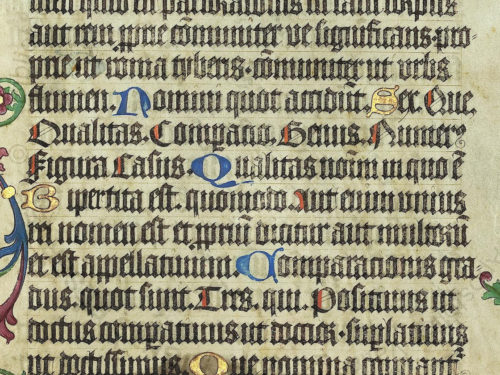 aut rem ꝓprie cōmuniter ve significans·pro
prie ut roma tyberis·cōmuniter ut vrbs
flumen. Nomini quot accidūt. Sex. Que.
Qualitas. Comparatio. Genus. Numerꝰ
Figura Casus. Qualitas noīm in quo ē
Bipertita est. quomodo. Aut enim vnius
rei nomen est et ꝓpriū dicitur aut multarū
et est appellatiuum. Comparationis gra
dus. quot sunt. Tres. qui. Positiuus ut
doctus compatiuus ut doctior·suplatiuus
ut doctissimus. Que nomina comparant̄